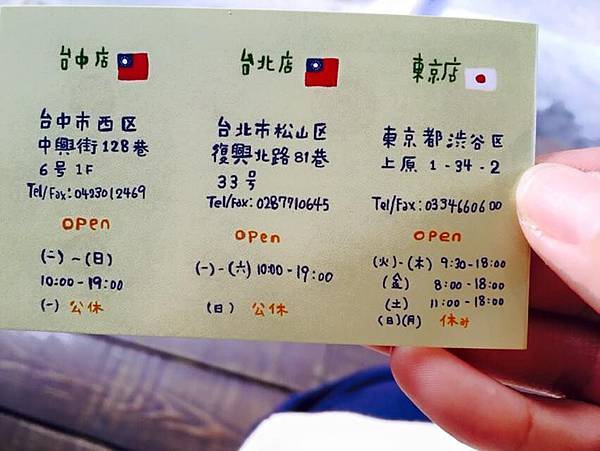 台中店
台中市西区
中興街128巷
6号1F
Tel/Fax:0423012469
open
(二)~(日)
10:00-19:00
(一)公休
台北店
台北市松山区
復興北路81巷
33号
Tel/Fax:0287710645
open
(一)-(六)10:00-19:00
(日)公休
東京店
東京都渋谷区
上原1-34-2
Tel/Fax:0334660600
open
(火)-(木)9:30-18:00
(金)8:00-18:00
(土)11:00-18:00
(日)(月)休み